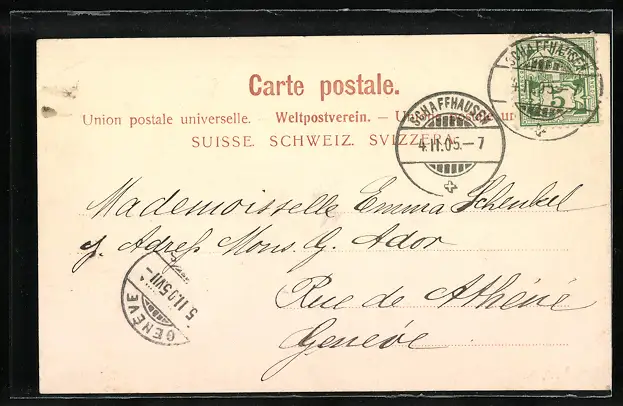 Carte postale.
Union postale universelle. — Weltpostverein. — U
SUISSE. SCHWEIZ. SVIZZERA.
SCHAFFHAUSEN
5
SCHAFFHAUSEN
4.II.05.–7
Mademoisselle Emma Schenkel
p. Adreß Mons. G. Ador
Rue de Athéné
Genève
GENÈVE
5.II.05.VII–